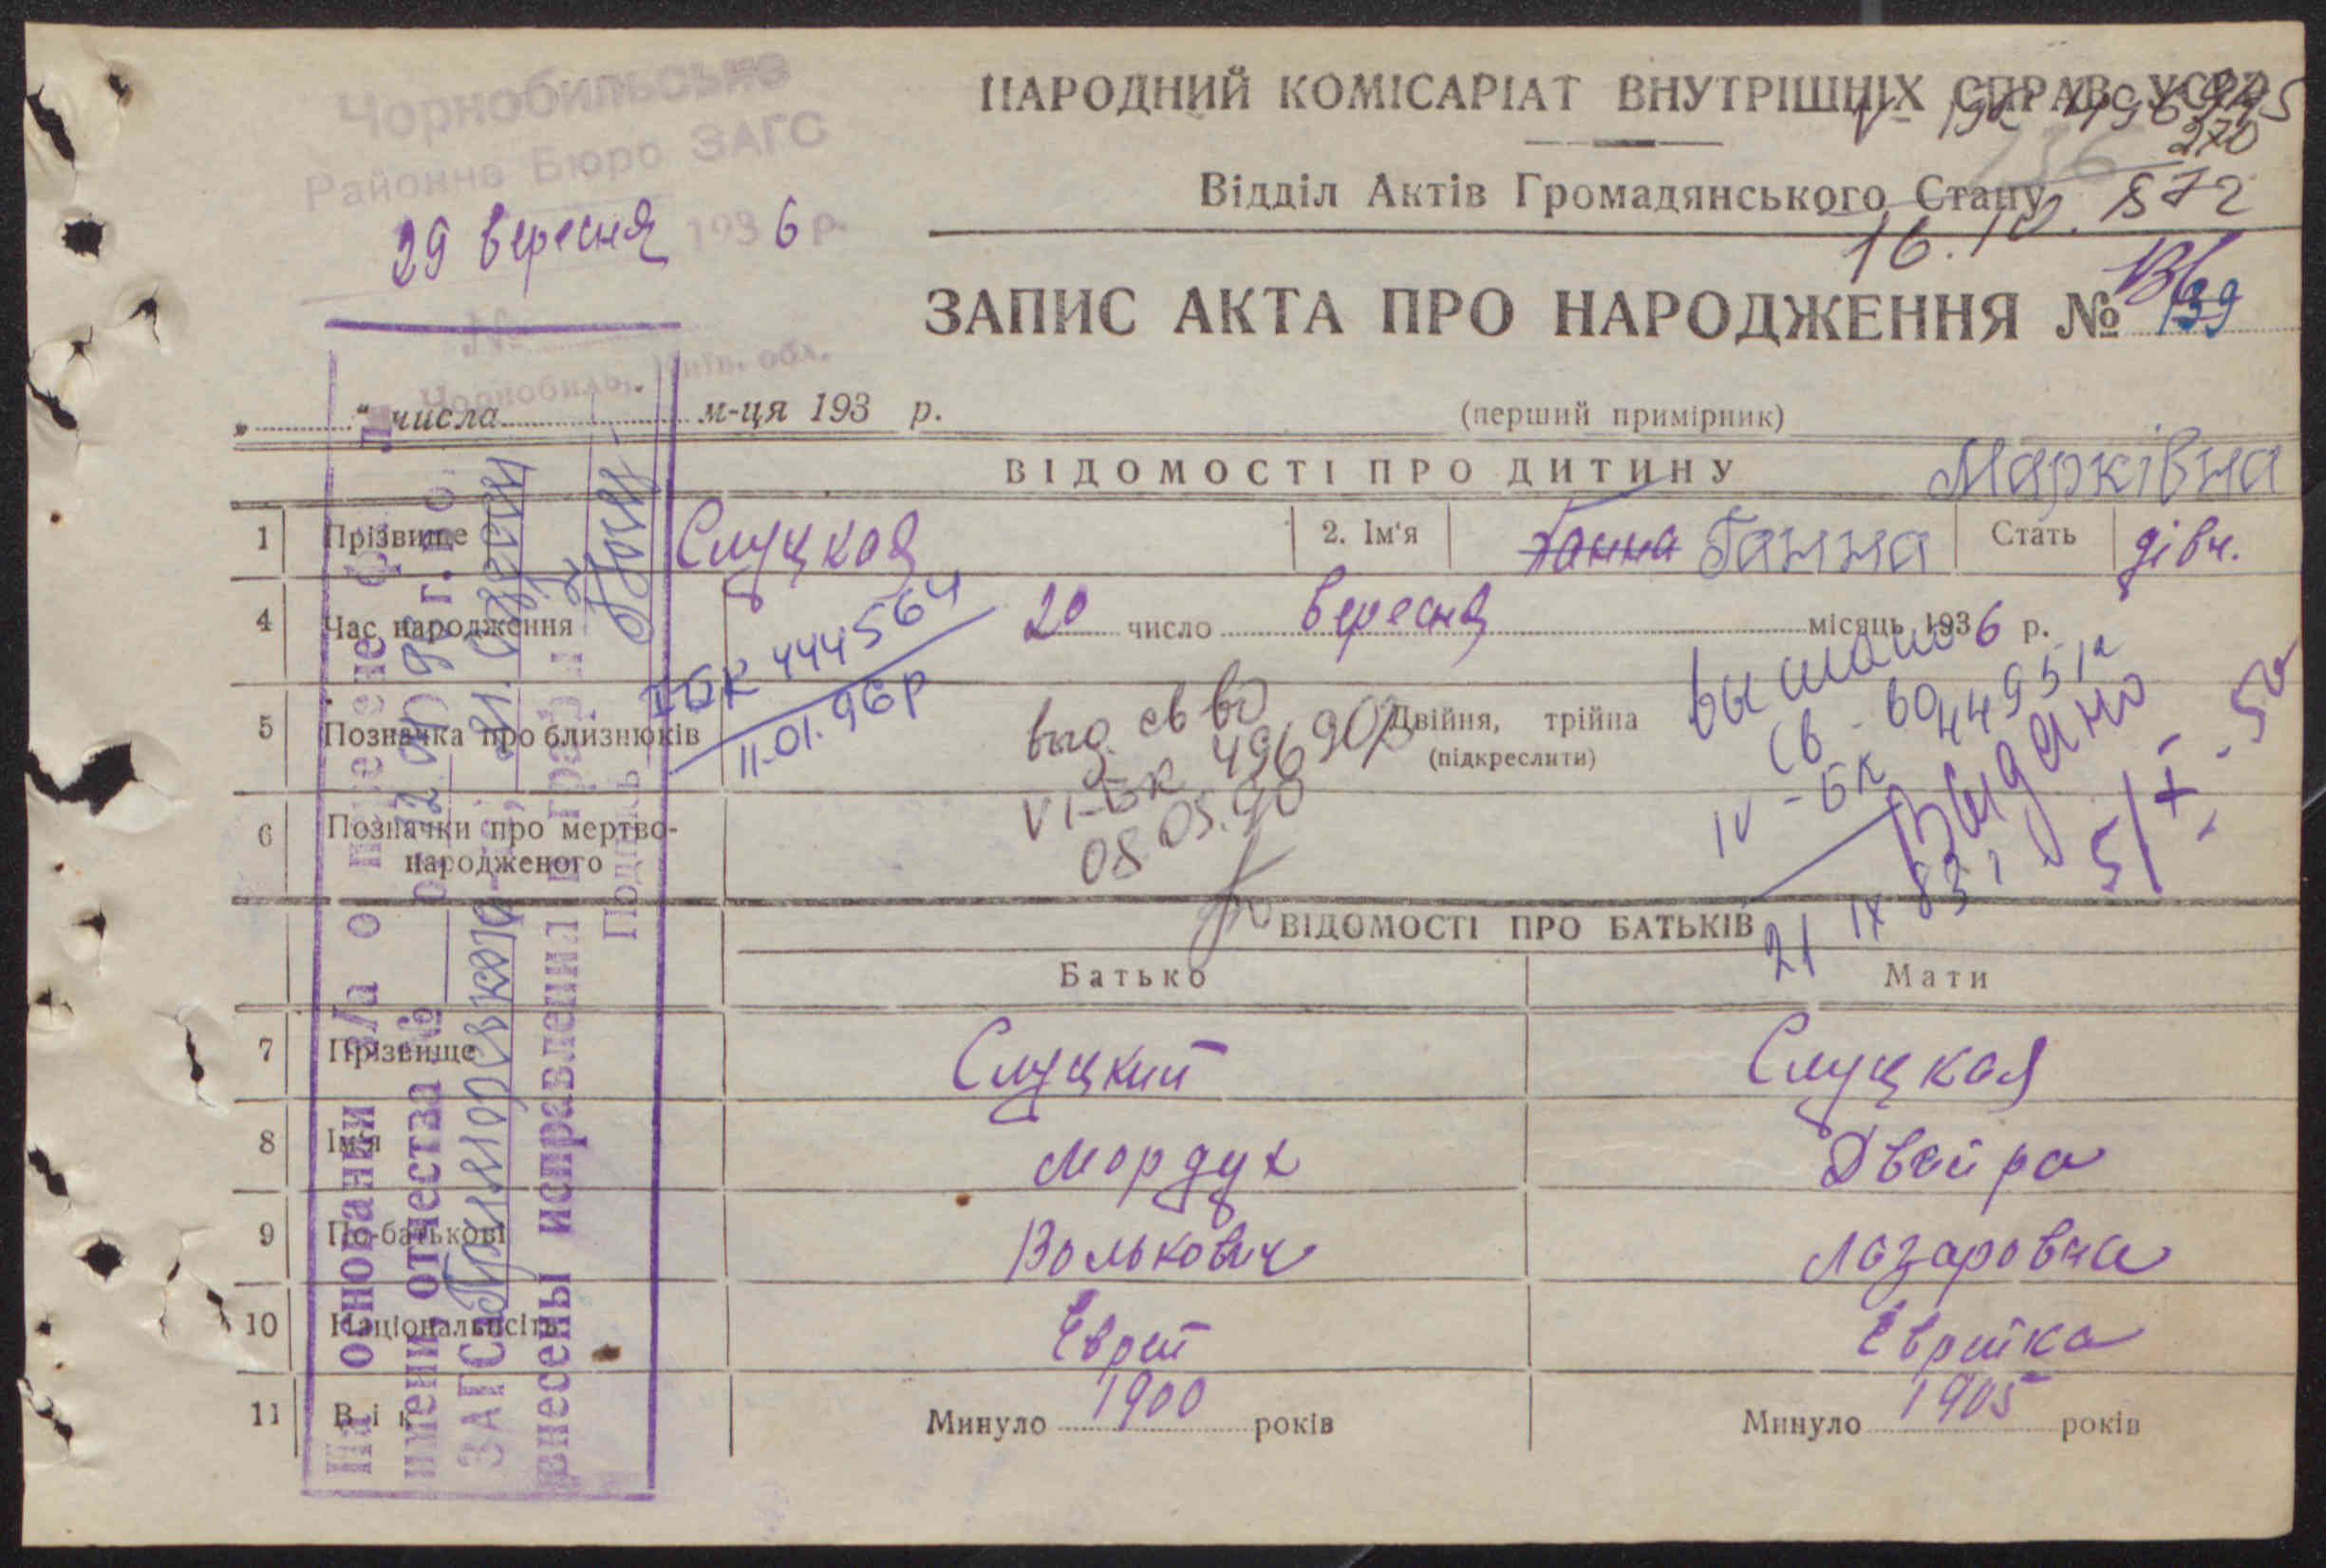 Чорнобильське
Районне Бюро ЗАГС
29 вересня 1936 р.
№
Чорнобиль, Київ. обл.
НАРОДНИЙ КОМІСАРІАТ ВНУТРІШНІХ СПРАВ УСРР
Відділ Актів Громадянського Стану
236
270
16.10. 872
ЗАПИС АКТА ПРО НАРОДЖЕННЯ № 139
„ “ числа м-ця 193 р.
(перший примірник)
ВІДОМОСТІ ПРО ДИТИНУ
Марківна
1 Прізвище Слуцкая 2. Ім‘я Ганна Ганна Стать дівч.
4 Час народження 20 число вересня місяць 1936 р.
І-БК 444564
11.01.96р
5 Позначка про близнюків Двійня, трійна
(підкреслити)
выд. св во
VI-БК 496907
08.05.90
св-во
IV-БК 449517
21 IX 83
Видано
5/X-50
6 Позначки про мертво-
народженого
ВІДОМОСТІ ПРО БАТЬКІВ
Батько Мати
7 Прізвище Слуцкий Слуцкая
8 Ім‘я Мордух Двейра
9 По-батькові Волькович Лазаровна
10 Національність Еврей Еврейка
11 Вік Минуло 1900 років Минуло 1905 років
На основании з/а о перемене
имени, отчества №
ЗАГС Приморского
внесены исправления в графы
Подпись